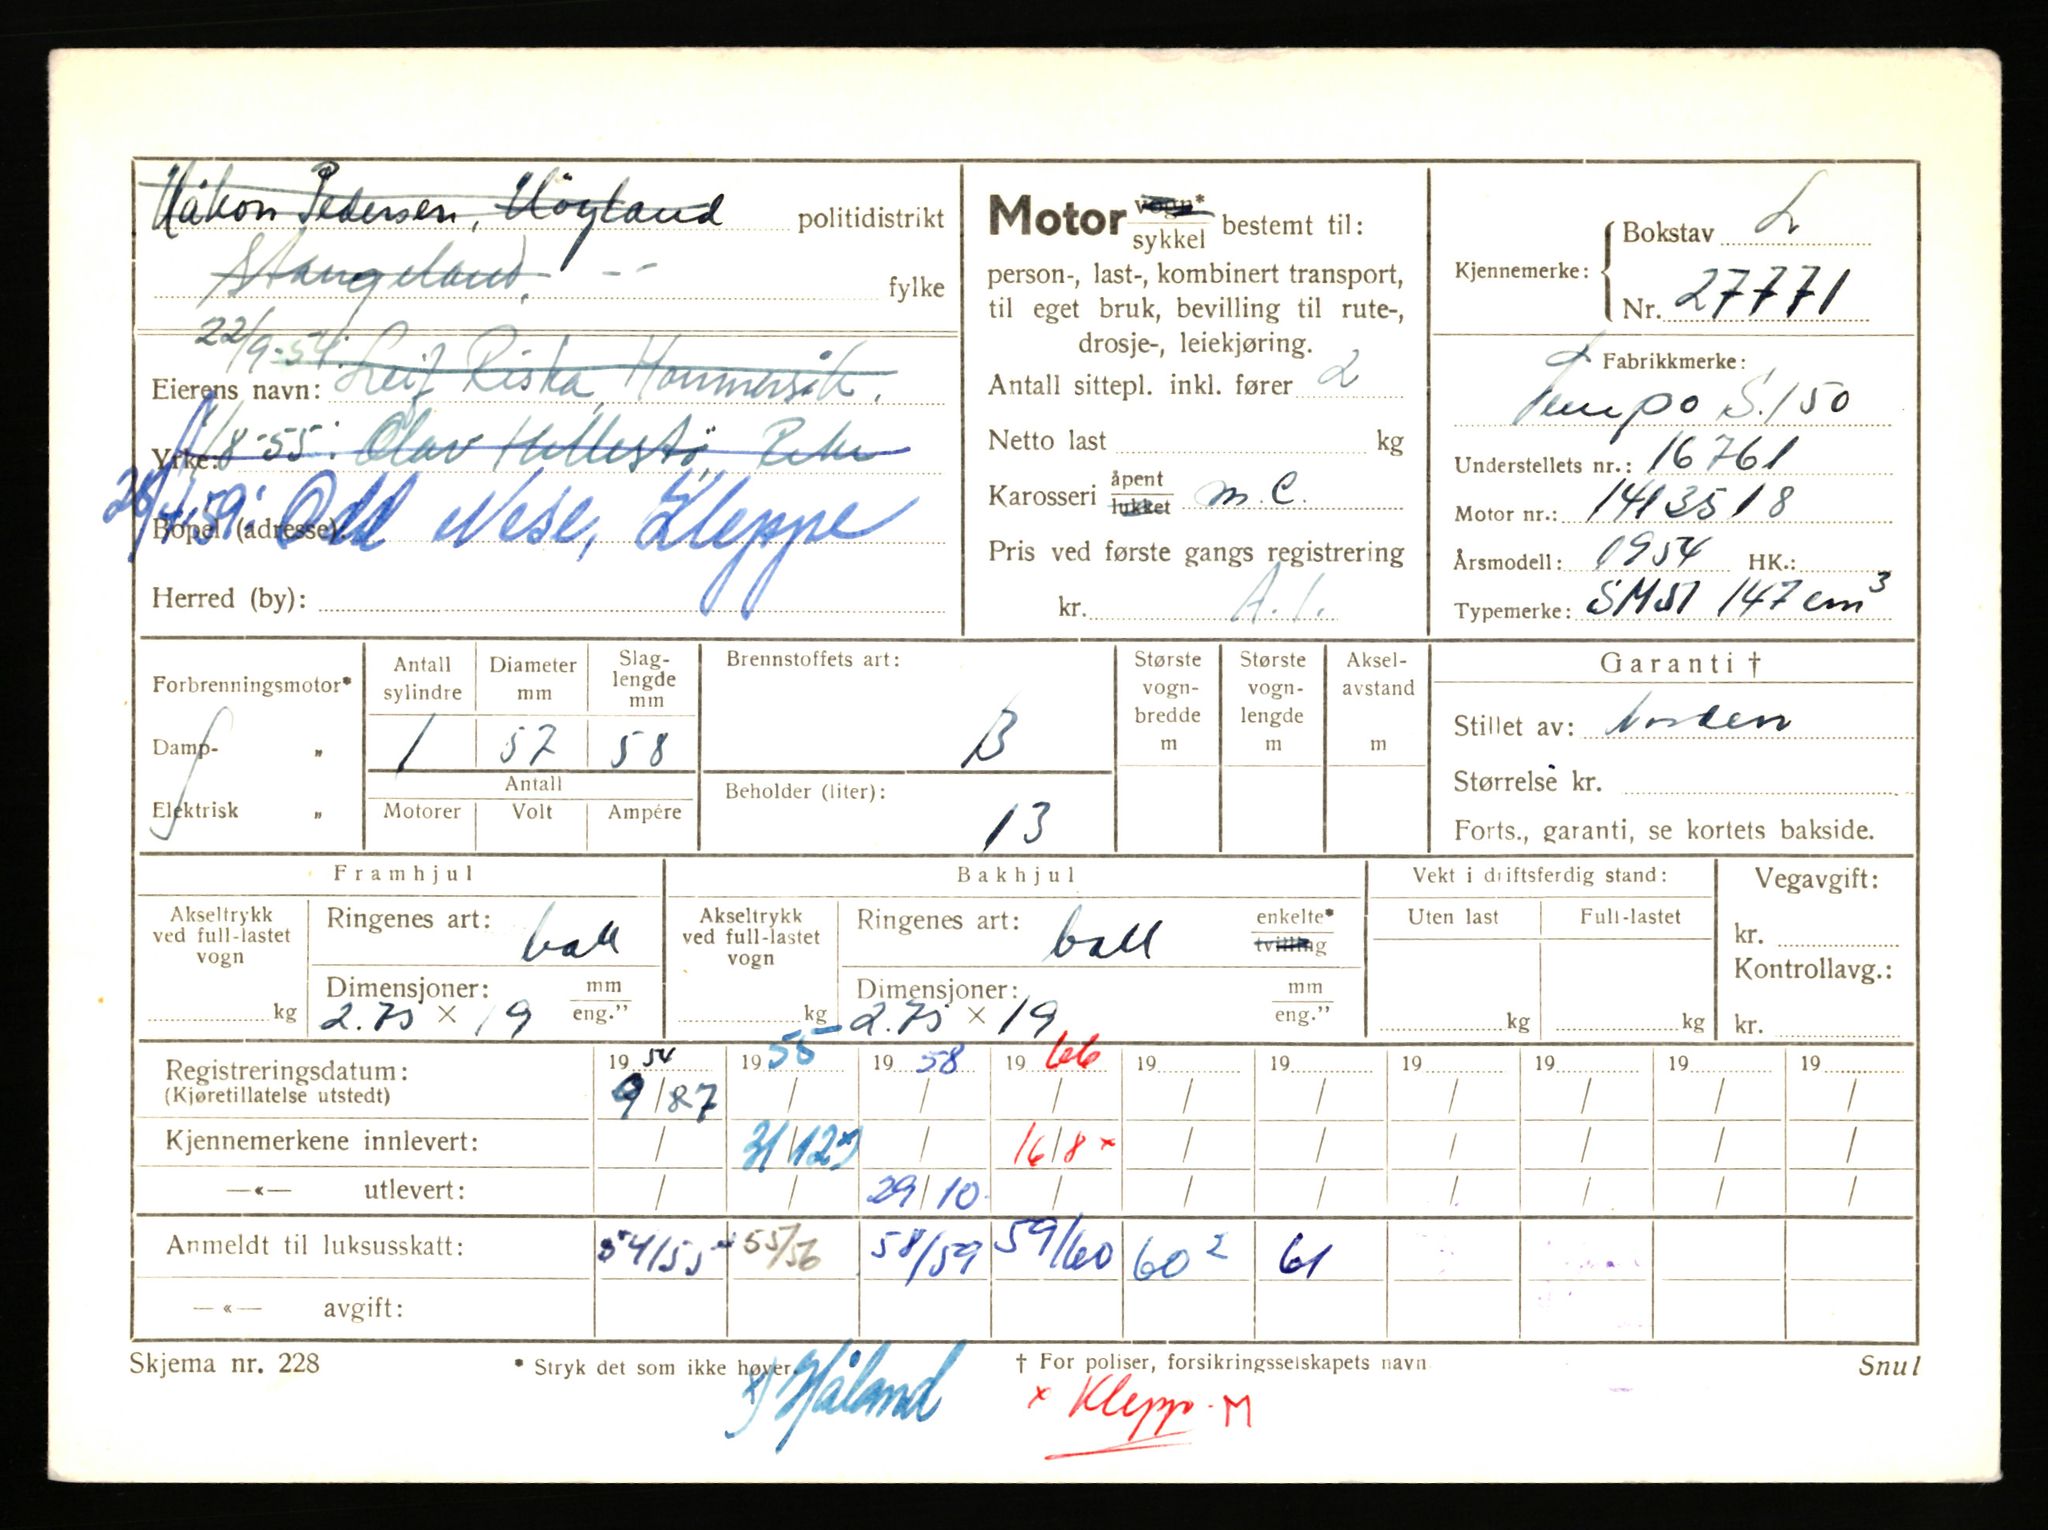 Håkon Pedersen, Høyland politidistrikt
Stangeland, fylke
22/9-54: Leif Riska, Hommersåk.
Eierens navn:
1/8-55: Olav Hellestö,
Yrke:
28/4-59: Odd Nese, Kleppe
Bopel (adresse):
Herred (by):
Motor vogn* sykkel bestemt til:
person-, last-, kombinert transport,
til eget bruk, bevilling til rute-,
drosje-, leiekjøring.
Antall sittepl. inkl. fører 2
Netto last kg
Karosseri åpent lukket m.c.
Pris ved første gangs registrering
kr. A.1.
Kjennemerke: Bokstav L
Nr. 27771
Fabrikkmerke:
Tempo S.150
Understellets nr.: 16761
Motor nr.: 1413518
Årsmodell: 1954 HK.:
Typemerke: SMS1 147 cm3
Forbrenningsmotor*
Damp- „
Elektrisk „
Antall sylindre
Diameter mm
Slag-lengde mm
1 57 58
Antall
Motorer Volt Ampére
Brennstoffets art:
B
Beholder (liter):
13
Største vogn-bredde m
Største vogn-lengde m
Aksel-avstand m
Garanti †
Stillet av: Norden
Størrelse kr.
Forts., garanti, se kortets bakside.
Framhjul
Akseltrykk ved full-lastet vogn
kg
Ringenes art: ball
Dimensjoner: mm eng."
2.75 × 19
Bakhjul
Akseltrykk ved full-lastet vogn
kg
Ringenes art: ball enkelte* tvilling
Dimensjoner: mm eng."
2.75 × 19
Vekt i driftsferdig stand:
Uten last Full-lastet
kg kg
Vegavgift:
kr.
Kontrollavg.:
kr.
19 54 19 55 19 58 19 66 19 19 19 19 19 19
Registreringsdatum: 9/87 / / / / / / / / /
(Kjøretillatelse utstedt)
Kjennemerkene innlevert: / 31/12 x) / 16/8 x / / / / / /
—«— utlevert: / / 29/10 / / / / / / /
Anmeldt til luksusskatt: 54/55 55/56 58/59 59/60 60 2 61
—«— avgift:
Skjema nr. 228 * Stryk det som ikke høver. † For poliser, forsikringsselskapets navn Snul
x) Håland x Klepp. M